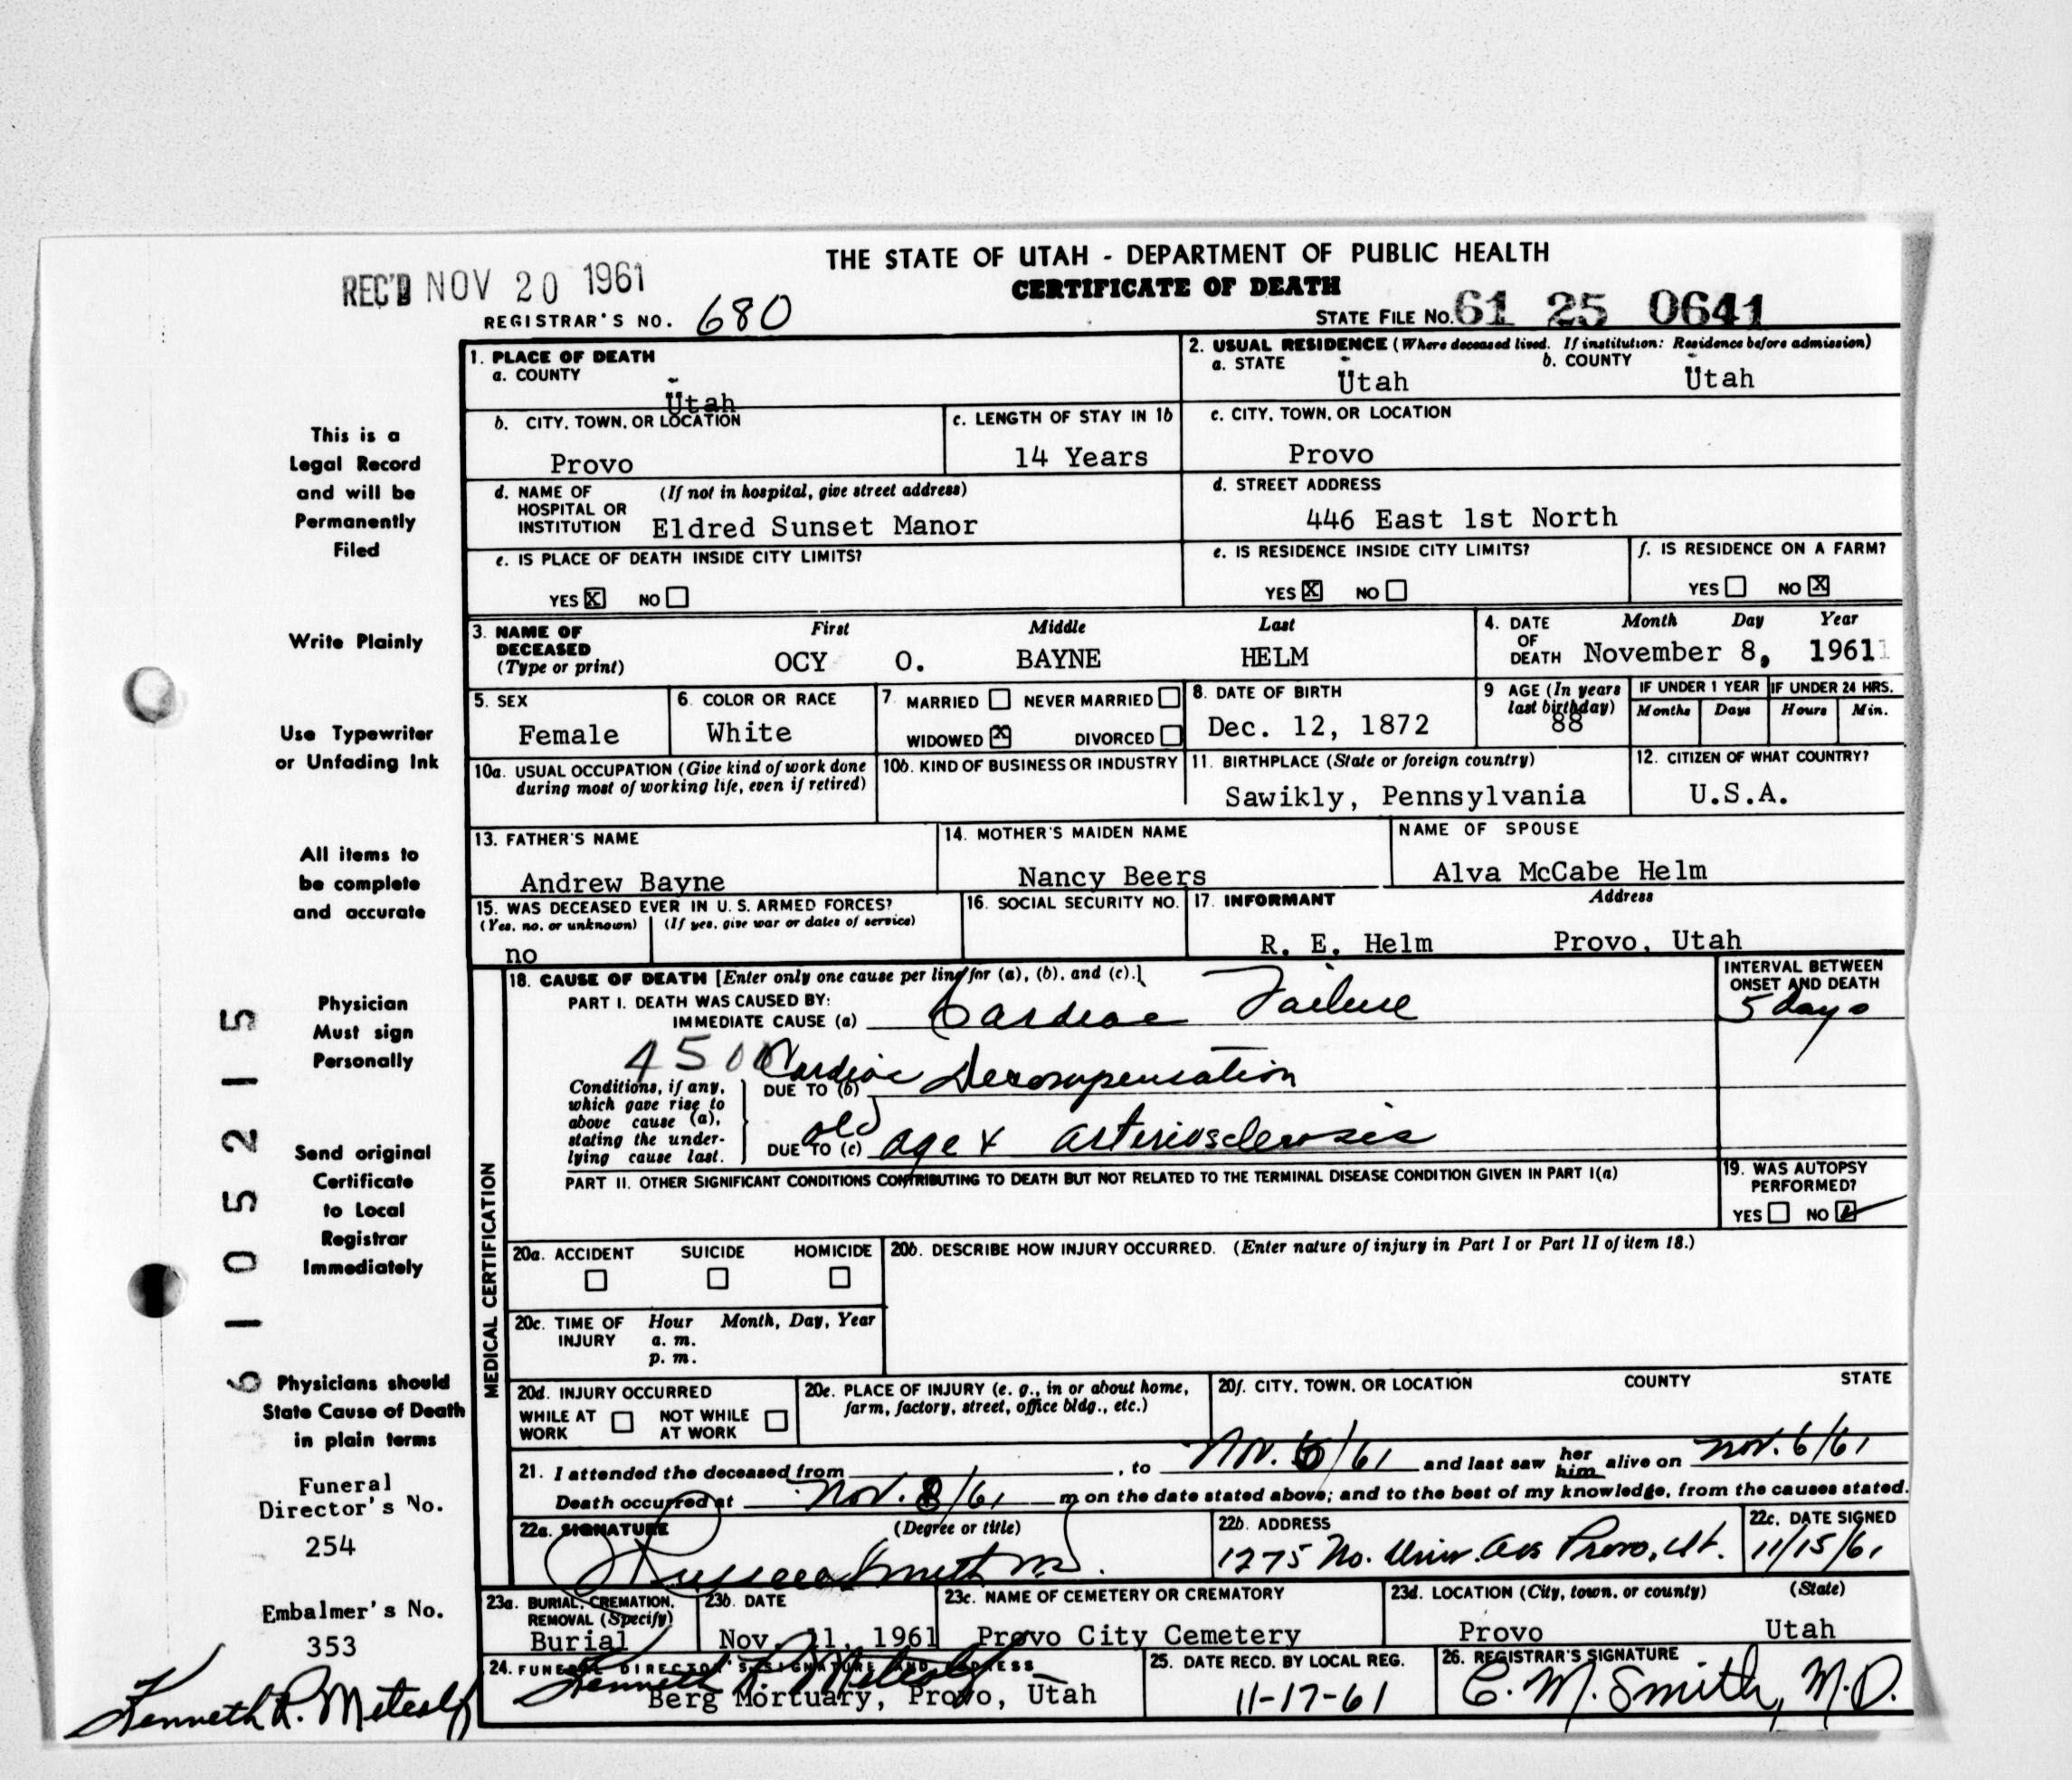 THE STATE OF UTAH - DEPARTMENT OF PUBLIC HEALTH
CERTIFICATE OF DEATH
REC'D NOV 20 1961
REGISTRAR'S NO. 680
STATE FILE No. 61 25 0641
This is a
Legal Record
and will be
Permanently
Filed
Write Plainly
Use Typewriter
or Unfading Ink
All items to
be complete
and accurate
Physician
Must sign
Personally
Send original
Certificate
to Local
Registrar
Immediately
Physicians should
State Cause of Death
in plain terms
Funeral
Director's No.
254
Embalmer's No.
353
Kenneth R. Metcalf
6 1 0 5 2 1 5
1. PLACE OF DEATH
a. COUNTY
Utah
2. USUAL RESIDENCE (Where deceased lived. If institution: Residence before admission)
a. STATE b. COUNTY
Utah Utah
b. CITY, TOWN, OR LOCATION
Provo
c. LENGTH OF STAY IN 1b
14 Years
c. CITY, TOWN, OR LOCATION
Provo
d. NAME OF (If not in hospital, give street address)
HOSPITAL OR
INSTITUTION Eldred Sunset Manor
d. STREET ADDRESS
446 East 1st North
e. IS PLACE OF DEATH INSIDE CITY LIMITS?
YES X NO
e. IS RESIDENCE INSIDE CITY LIMITS?
YES X NO
f. IS RESIDENCE ON A FARM?
YES NO X
3. NAME OF
DECEASED
(Type or print)
First Middle Last
OCY O. BAYNE HELM
4. DATE
OF
DEATH
Month Day Year
November 8, 1961
5. SEX
Female
6. COLOR OR RACE
White
7. MARRIED NEVER MARRIED
WIDOWED X DIVORCED
8. DATE OF BIRTH
Dec. 12, 1872
9 AGE (In years
last birthday)
88
IF UNDER 1 YEAR IF UNDER 24 HRS.
Months Days Hours Min.
10a. USUAL OCCUPATION (Give kind of work done
during most of working life, even if retired)
10b. KIND OF BUSINESS OR INDUSTRY
11. BIRTHPLACE (State or foreign country)
Sawikly, Pennsylvania
12. CITIZEN OF WHAT COUNTRY?
U.S.A.
13. FATHER'S NAME
Andrew Bayne
14. MOTHER'S MAIDEN NAME
Nancy Beers
NAME OF SPOUSE
Alva McCabe Helm
15. WAS DECEASED EVER IN U. S. ARMED FORCES?
(Yes, no, or unknown) (If yes, give war or dates of service)
no
16. SOCIAL SECURITY NO.
17. INFORMANT Address
R. E. Helm Provo, Utah
MEDICAL CERTIFICATION
18. CAUSE OF DEATH [Enter only one cause per line for (a), (b), and (c).]
PART I. DEATH WAS CAUSED BY:
IMMEDIATE CAUSE (a) Cardiac Failure
INTERVAL BETWEEN
ONSET AND DEATH
5 days
4500
Conditions, if any,
which gave rise to
above cause (a),
stating the under-
lying cause last.
DUE TO (b) Cardiac Decompensation
DUE TO (c) old age & arteriosclerosis
PART II. OTHER SIGNIFICANT CONDITIONS CONTRIBUTING TO DEATH BUT NOT RELATED TO THE TERMINAL DISEASE CONDITION GIVEN IN PART I(a)
19. WAS AUTOPSY
PERFORMED?
YES NO
20a. ACCIDENT SUICIDE HOMICIDE
20b. DESCRIBE HOW INJURY OCCURRED. (Enter nature of injury in Part I or Part II of item 18.)
20c. TIME OF Hour Month, Day, Year
INJURY a. m.
p. m.
20d. INJURY OCCURRED
WHILE AT NOT WHILE
WORK AT WORK
20e. PLACE OF INJURY (e. g., in or about home,
farm, factory, street, office bldg., etc.)
20f. CITY, TOWN, OR LOCATION COUNTY STATE
21. I attended the deceased from , to Nov. 6/61 and last saw her him alive on Nov. 6/61
Death occurred at Nov. 8/61 m on the date stated above; and to the best of my knowledge, from the causes stated.
22a. SIGNATURE (Degree or title)
Smith
22b. ADDRESS
1275 No. Univ. Ave Provo, Ut.
22c. DATE SIGNED
11/15/61
23a. BURIAL, CREMATION,
REMOVAL (Specify)
Burial
23b. DATE
Nov. 11, 1961
23c. NAME OF CEMETERY OR CREMATORY
Provo City Cemetery
23d. LOCATION (City, town, or county) (State)
Provo Utah
24. FUNERAL DIRECTOR'S SIGNATURE AND ADDRESS
Kenneth R. Metcalf
Berg Mortuary, Provo, Utah
25. DATE RECD. BY LOCAL REG.
11-17-61
26. REGISTRAR'S SIGNATURE
E. M. Smith, M.D.